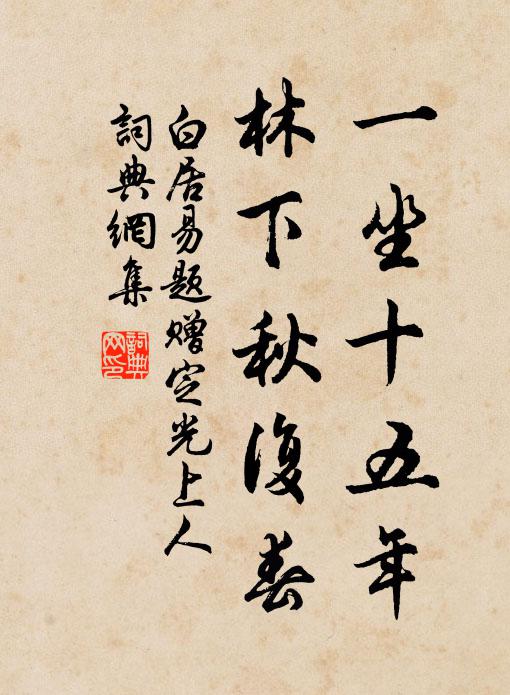 一坐十五年
林下秋復春
白居易題贈定光上人
詞典網集
詞典網印